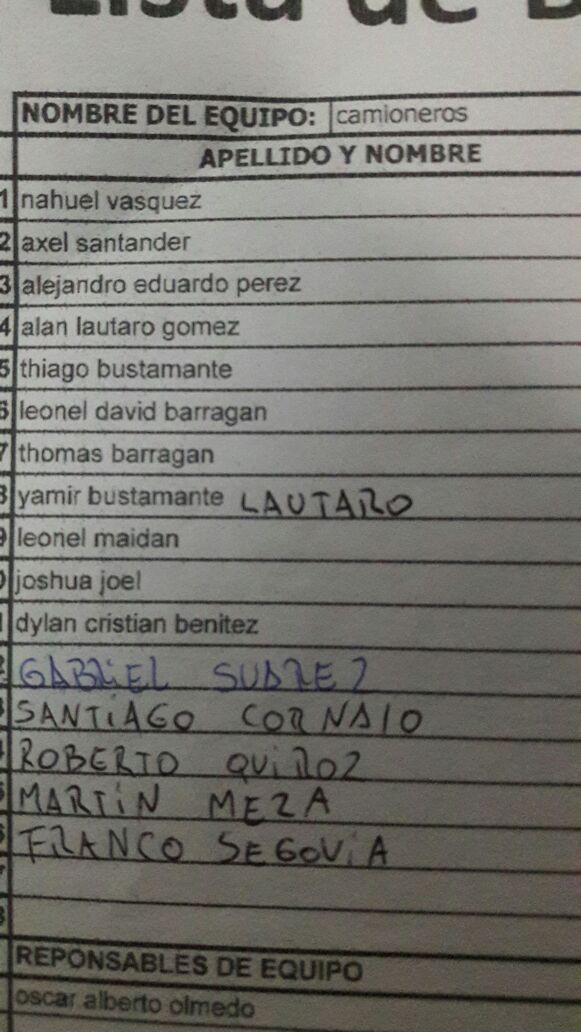 Lista de
NOMBRE DEL EQUIPO: camioneros
APELLIDO Y NOMBRE
1 nahuel vasquez
2 axel santander
3 alejandro eduardo perez
4 alan lautaro gomez
5 thiago bustamante
6 leonel david barragan
7 thomas barragan
8 yamir bustamante LAUTARO
9 leonel maidan
0 joshua joel
1 dylan cristian benitez
2 GABRiEL SUAREZ
3 SANTiAGO CORNAIO
4 ROBERTO QUiROZ
5 MARTiN MEZA
6 FRANCO SEGOViA
7
8
REPONSABLES DE EQUIPO
oscar alberto olmedo